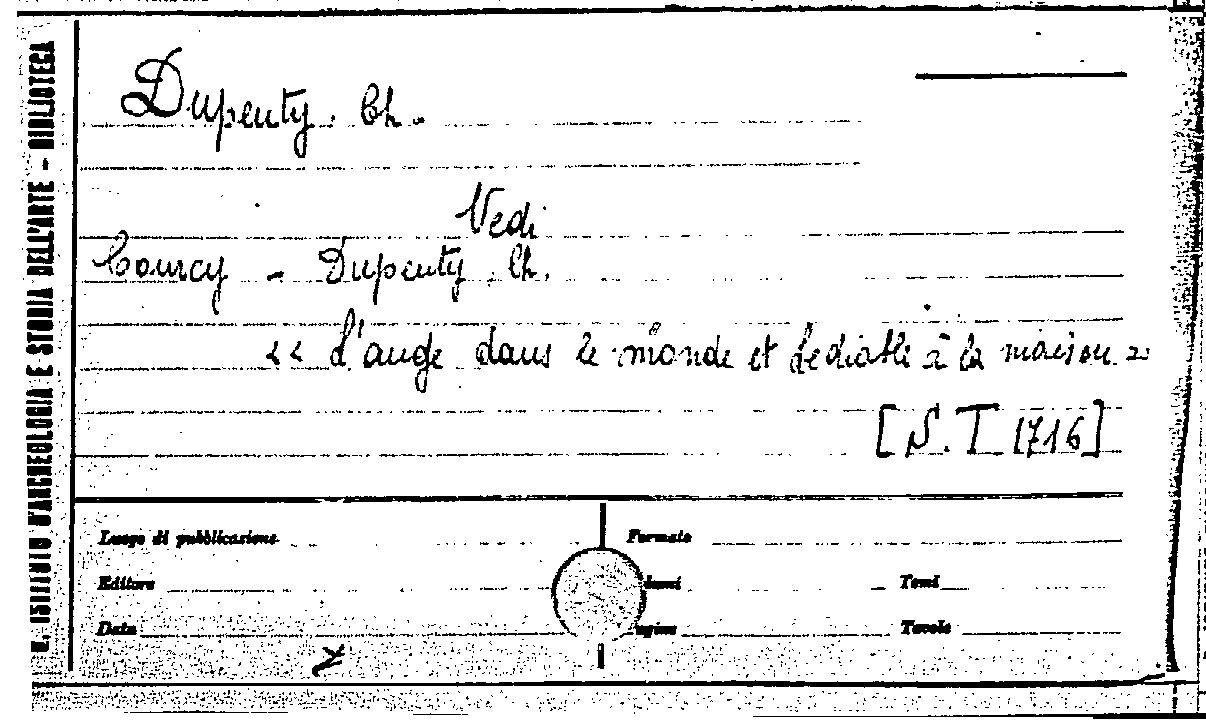 R. ISTITUTO D'ARCHEOLOGIA E STORIA DELL'ARTE - BIBLIOTECA
Dupeuty. Ch.
Vedi
Courcy - Dupeuty. Ch.
<< L'ange dans le monde et le diable à la maison >>
[S. T 1716]
Luogo di pubblicazione
Formato
Editore
lumi
Tomi
Data
agine
Tavole